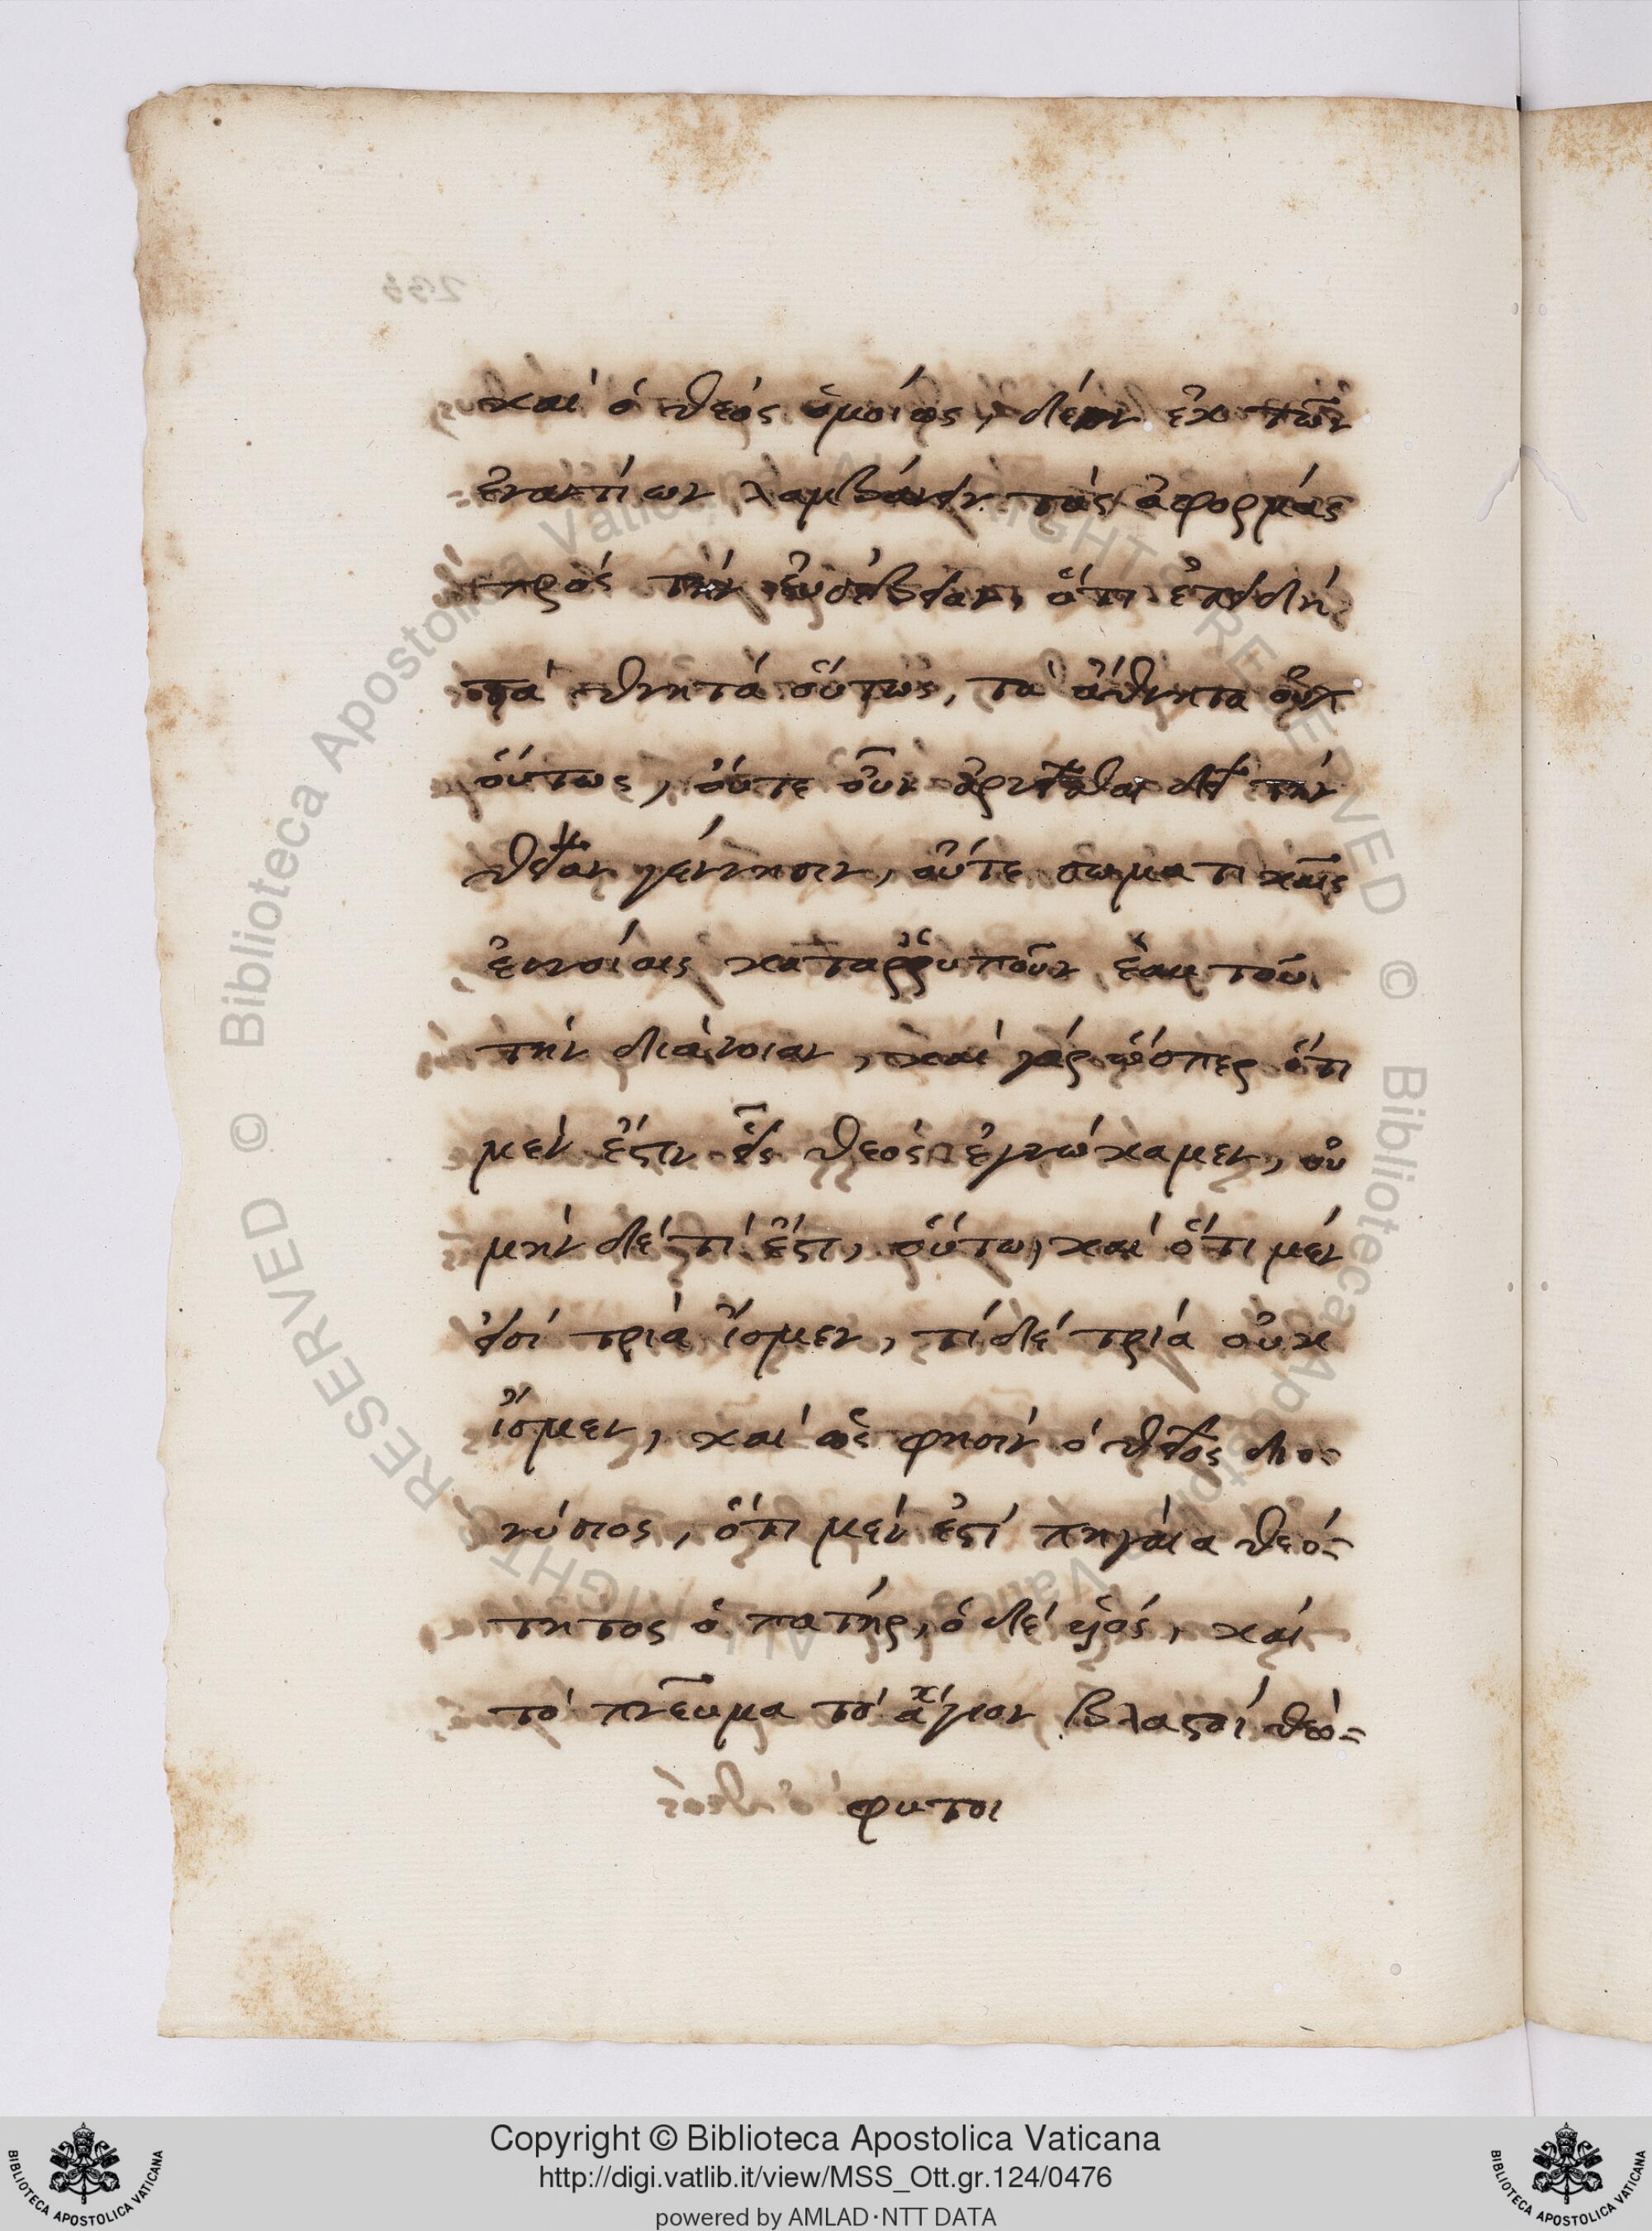 καὶ ὁ θεὸς ὁμοίως, δέον ἐκ τῶν
ἐναντίων λαμβάνειν τὰς ἀφορμὰς
πρὸς τὴν εὐσέβειαν, ὅτι ἐπειδὴ
τὰ θνητὰ οὕτως, τὰ ἄθνητα οὐχ
οὕτως, οὔτε οὖν ἀρνεῖσθαι δεῖ τὴν
θείαν γέννησιν, οὔτε σωματικαῖς
ἐννοίαις καταρρυποῦν ἑαυτοῦ
τὴν διάνοιαν, καὶ γὰρ ὥσπερ ὅτι
μὲν ἔστιν εἷς θεὸς ἐγνώκαμεν, οὐ
μὴν δὲ τί ἔστι, οὕτω, καὶ ὅτι μὲν
εἰσὶ τρία ἴσμεν, τί δὲ τρία οὐκ
ἴσμεν, καὶ ὥς φησιν ὁ θεῖος διο-
νύσιος, ὅτι μὲν ἐστὶ πηγαία θεό-
τητος ὁ πατήρ, ὁ δὲ υἱός, καὶ
τὸ πνεῦμα τὸ ἅγιον βλαστοὶ θεό-
φυτοι
© Biblioteca Apostolica Vaticana ALL RIGHTS RESERVED
Copyright © Biblioteca Apostolica Vaticana
http://digi.vatlib.it/view/MSS_Ott.gr.124/0476
powered by AMLAD·NTT DATA
BIBLIOTECA APOSTOLICA VATICANA
BIBLIOTECA APOSTOLICA VATICANA